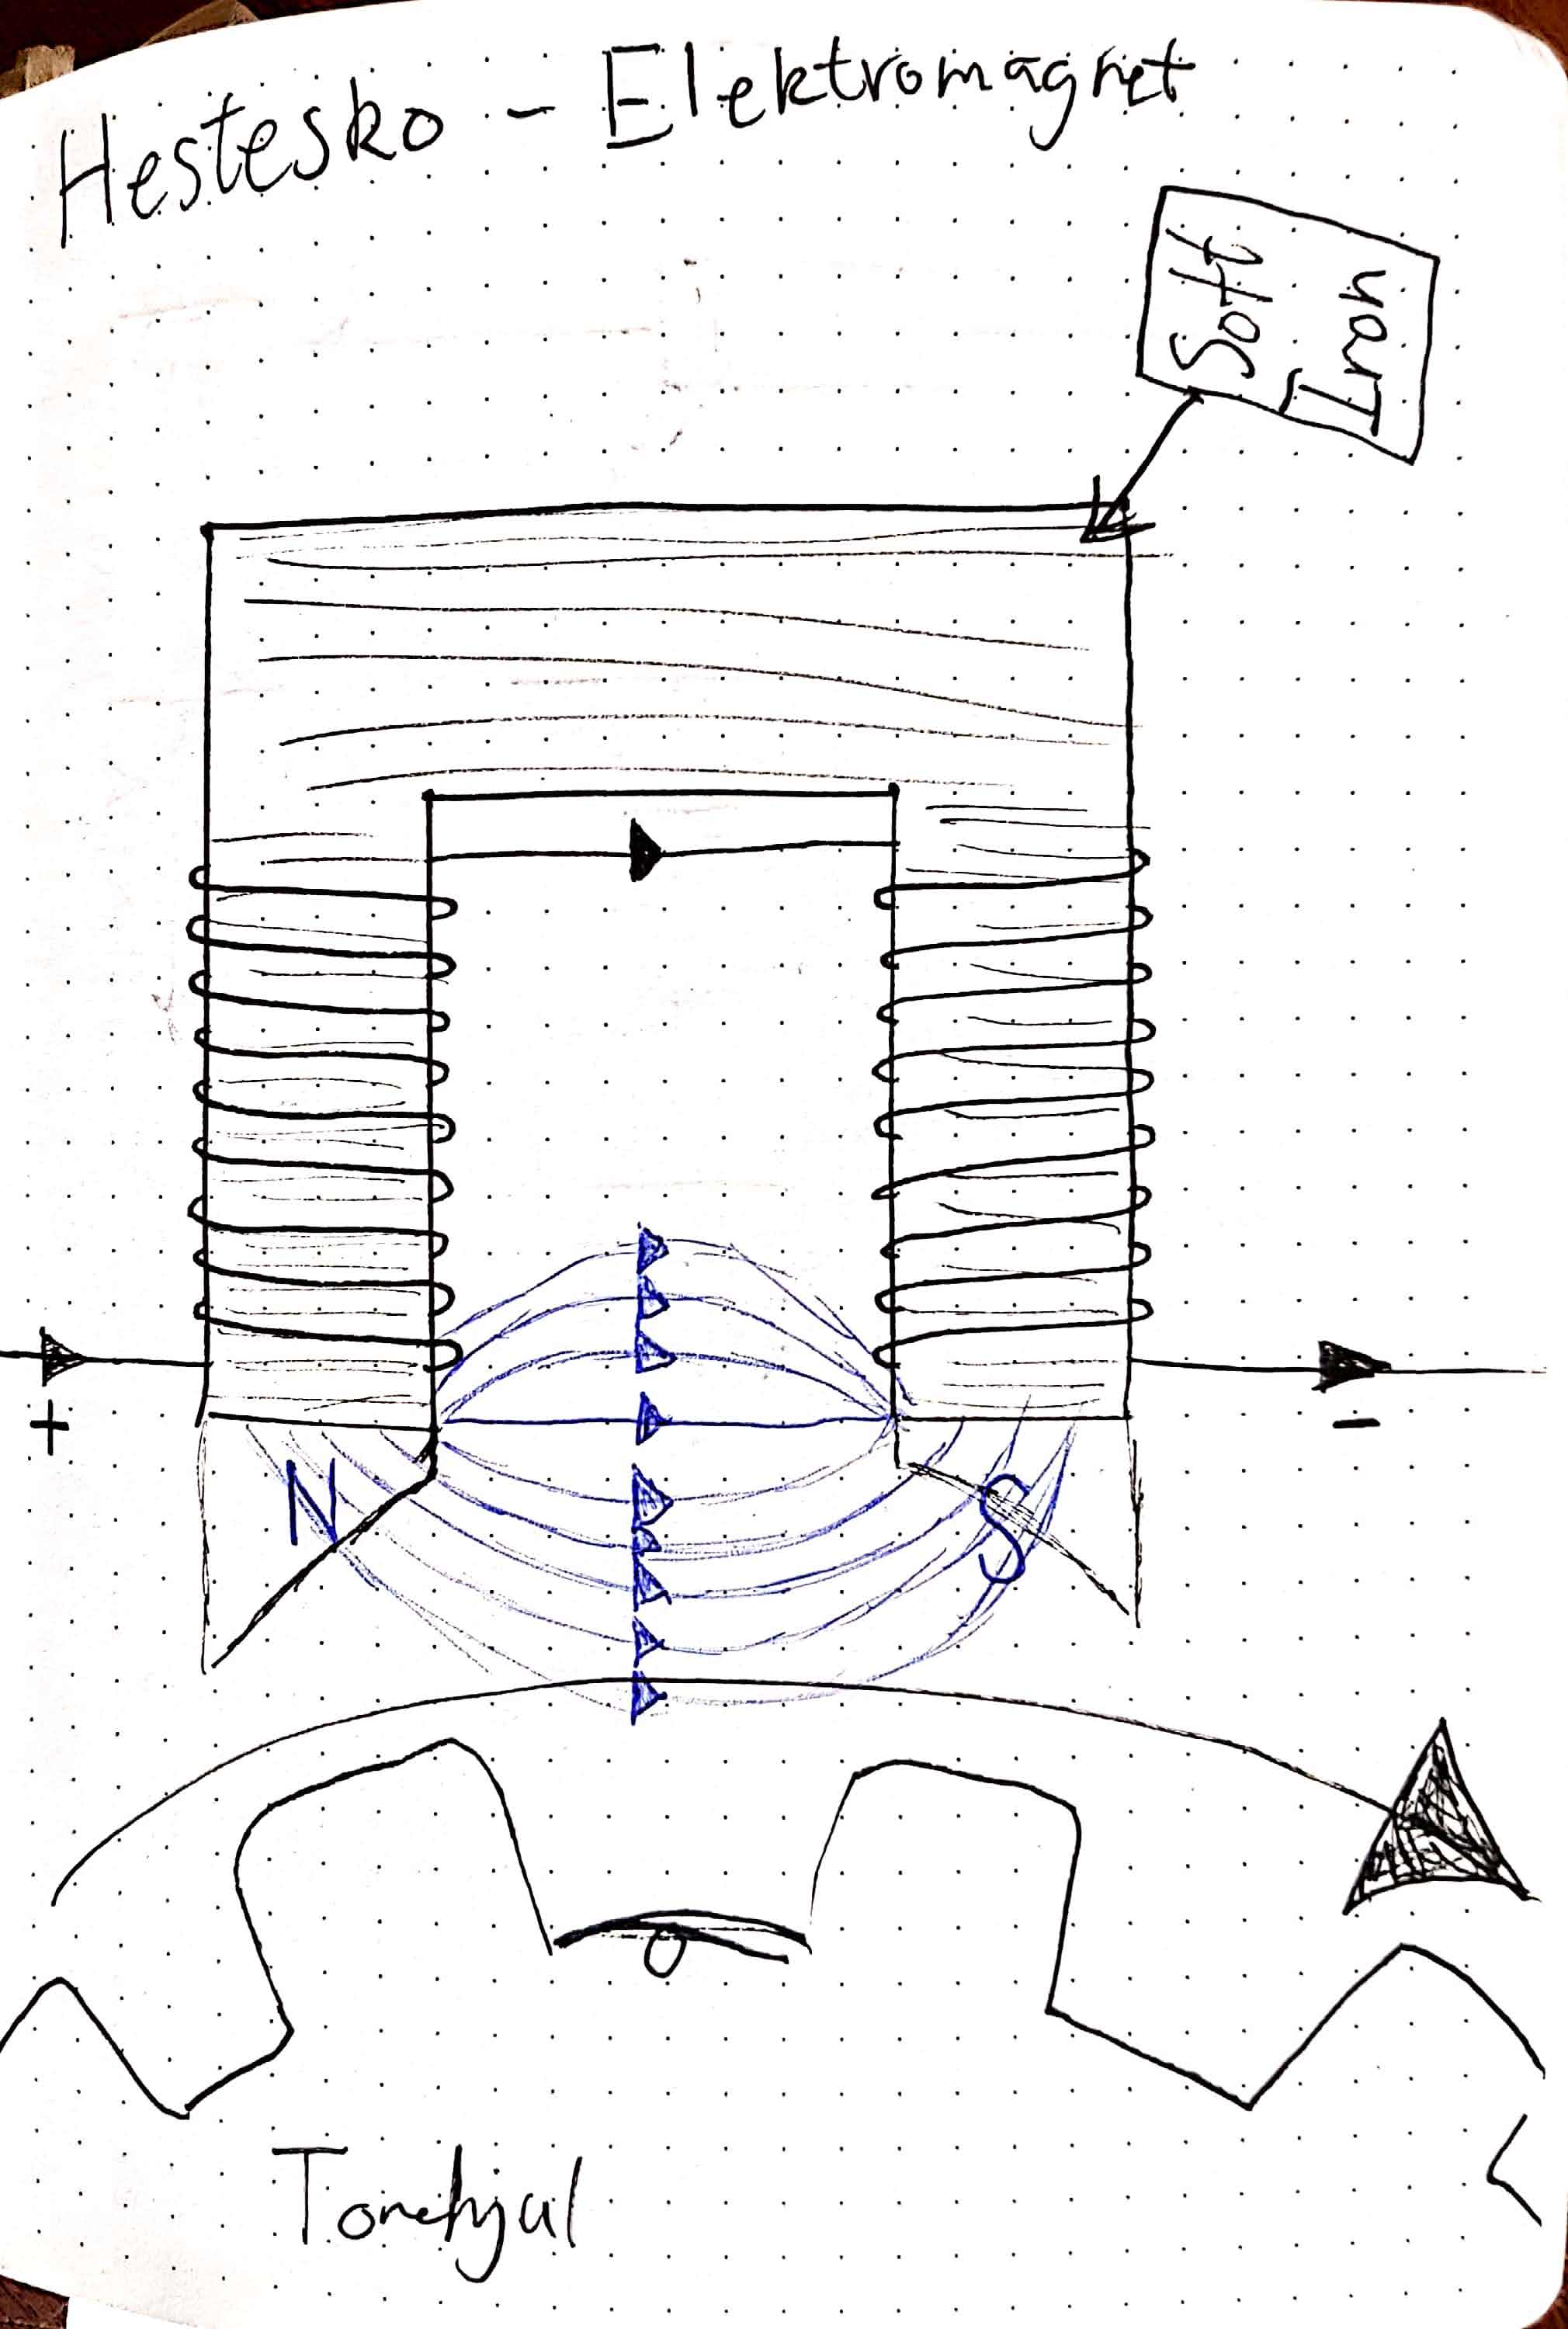 Hestesko - Elektromagnet
Soft
Iron
+
-
N
S
Tonehjul